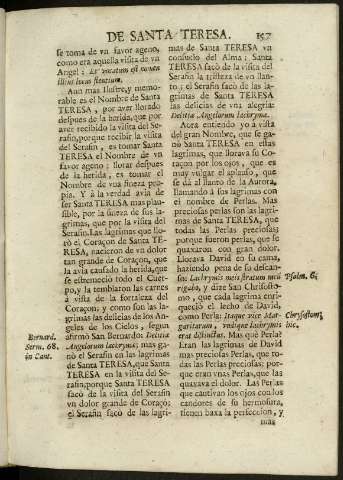 DE SANTA TERESA. 157
se toma de vn favor ageno,
como era aquella visita de vn
Angel: Et vocatum est nomen
illius locus flentium.
Aun mas Ilustre, y memo-
rable es el Nombre de Santa
TERESA, por aver llorado
despues de la herida, que por
aver recibido la visita del Se-
rafin, porque recibir la visita
del Serafin, es tomar Santa
TERESA el Nombre de vn
favor ageno; llorar despues
de la herida, es tomar el
Nombre de vna fineza pro-
pia. Y à la verdad avia de
ser Santa TERESA mas plau-
sible, por la fineza de sus la-
grimas, que por la visita del
Serafin. Las lagrimas que llo-
rò el Coraçon de Santa TE-
RESA, nacieron de vn dolor
tan grande de Coraçon, que
la avia causado la herida, que
se estremeciò todo el Cuer-
po, y la temblaron las carnes
à vista de la fortaleza del
Coraçon; y como son las la-
grimas las delicias de los An-
geles de los Cielos, segun
Bernard.
Serm. 68.
in Cant.
afirmò San Bernardo: Delitia
Angelorum lachryma; mas ga-
nò el Serafin en las lagrimas
de Santa TERESA, que Santa
TERESA en la visita del Se-
rafin, porque Santa TERESA
sacò de la visita del Serafin
vn dolor grande de Coraço;
el Serafin sacò de las lagri-
mas de Santa TERESA vn
consuelo del Alma: Santa
TERESA sacò de la visita del
Serafin la tristeza de vn llan-
to; el Serafin sacò de las la-
grimas de Santa TERESA
las delicias de vna alegria:
Delitia Angelorum lachryma.
Aora entiendo yo à vista
del gran Nombre, que se ga-
nò Santa TERESA en estas
lagrimas, que llorava su Co-
raçon por los ojos, que es
muy vulgar el aplauso, que
se dà al llanto de la Aurora,
llamando à sus lagrimas con
el nombre de Perlas. Mas
preciosas perlas son las lagri-
mas de Santa TERESA, que
todas las Perlas preciosas;
porque fueron perlas, que se
quaxaron con gran dolor.
Llorava David en su cama,
haziendo pena de su descan-
so: Lachrymis meis stratum meũ
Psalm. 6.
rigabo, y dize San Chrisosto-
mo, que cada lagrima enri-
queciò el lecho de David,
como Perla: Itaque vice Mar-
Chrysostom.
hic.
garitarum, vndique lachrymis
erat distinctus. Mas què Perla?
Eran las lagrimas de David
mas preciosas Perlas, que to-
das las Perlas preciosas; por-
que eran vnas Perlas, que las
quaxava el dolor. Las Perlas
que cautivan los ojos con los
candores de su hermosura,
tienen baxa la perfeccion, y
mas